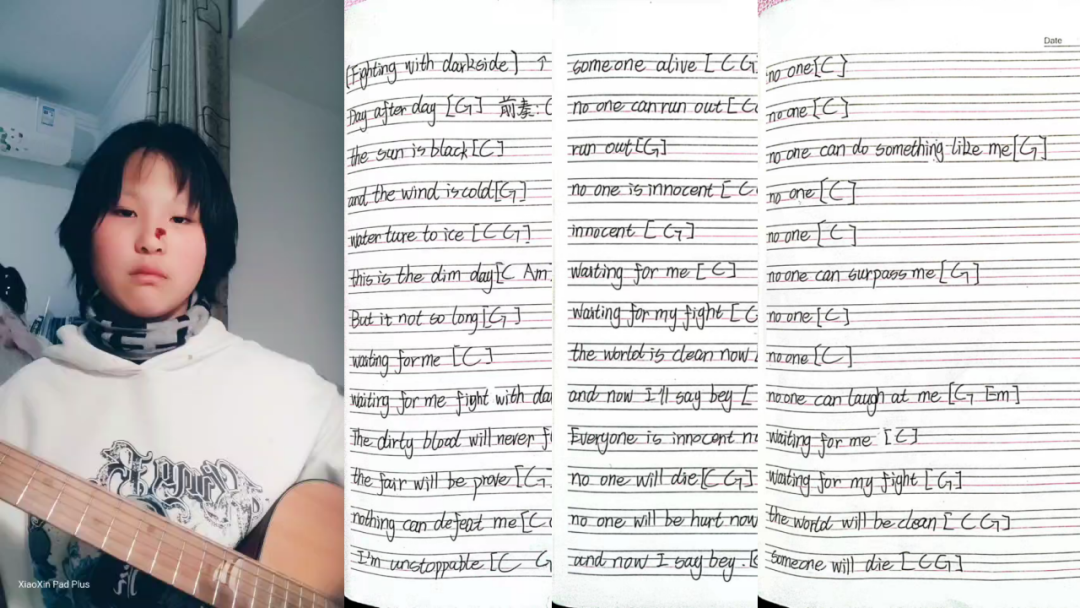 XiaoXin Pad Plus
(Fighting with darkside] ↑
Day after day [G] 前奏: (
the sun is black[C]
and the wind is cold[G]
water ture to ice [C G]
this is the dim day[C Am
But it not so long[G]
waiting for me [C]
waiting for me fight with da
The dirty blood will never f
the fair will be prove [G
nothing can defeat me[C
I'm unstoppable [C G
someone alive [C G
no one can run out [C
run out[G]
no one is innocent [C
innocent [G]
waiting for me [C]
waiting for my fight [C
the world is clean now
and now I'll say bey [
Everyone is innocent n
no one will die[C G]
no one will be hurt now
and now I say bey. [
Date
no one[C]
no one [C]
no one can do something like me[G]
no one [C]
no one [C]
no one can surpass me [G]
no one [C]
no one [C]
no one can laugh at me [G Em]
waiting for me [C]
waiting for my fight [G]
the world will be clean [C G]
someone will die [C G]